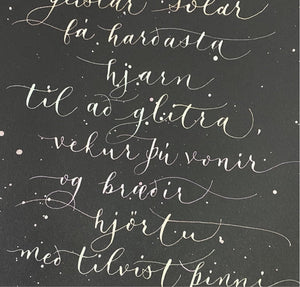 geislar sólar
fá harðasta
hjarn
til að glitra,
vekur þú vonir
og bræðir
hjörtu
með tilvist þinni